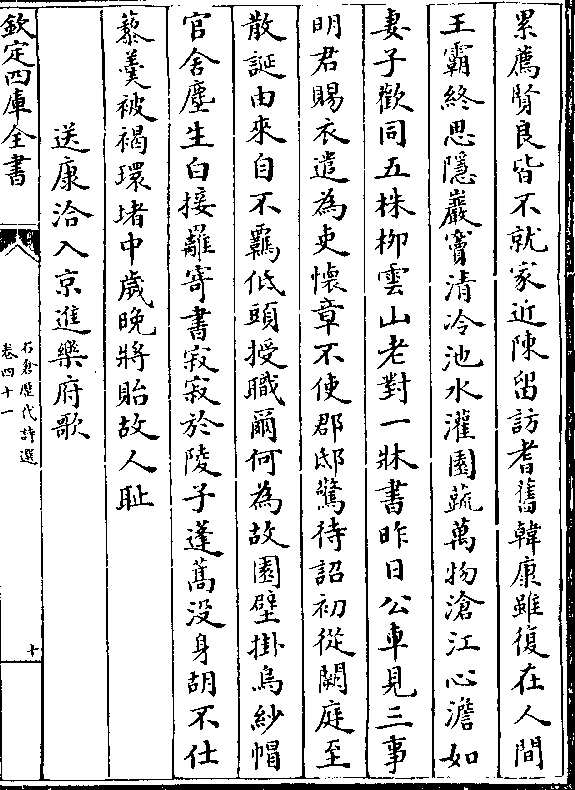 累薦賢良皆不就家近陳留訪耆舊韓康雖復在人間
王霸終思隱巖竇清冷池水灌園蔬萬物滄江心澹如
妻子歡同五株柳雲山老對一牀書昨日公車見三事
明君賜衣遣為吏懷章不使郡邸驚待詔初從闕庭至
散誕由來自不羈低頭授職爾何為故園壁掛烏紗帽
官舍塵生白接䍦寄書寂寂於陵子蓬蒿没身胡不仕
藜羮被褐環堵中歲晚將貽故人耻
送康洽入京進樂府歌
欽定四庫全書
石倉歷代詩選
卷四十一
十